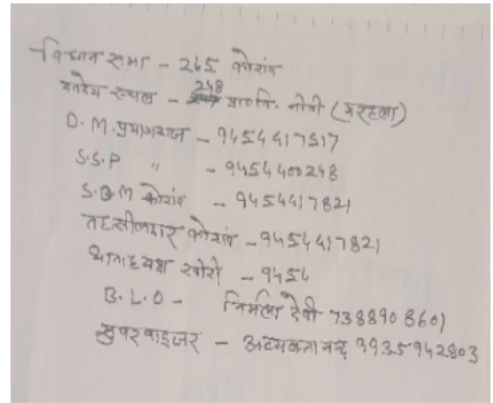 विधान सभा - 265 कोरांव
मतदेय स्थल - 248 प्रा०वि० नीवी (मरहला)
D.M. प्रयागराज - 9454417517
S.S.P " - 9454400248
S.D.M कोरांव - 9454417821
तहसीलदार कोरांव - 9454417821
थानाध्यक्ष खीरी - 9454
B.L.O - निर्मला देवी 7388908601
सुपरवाइजर - 9935942803